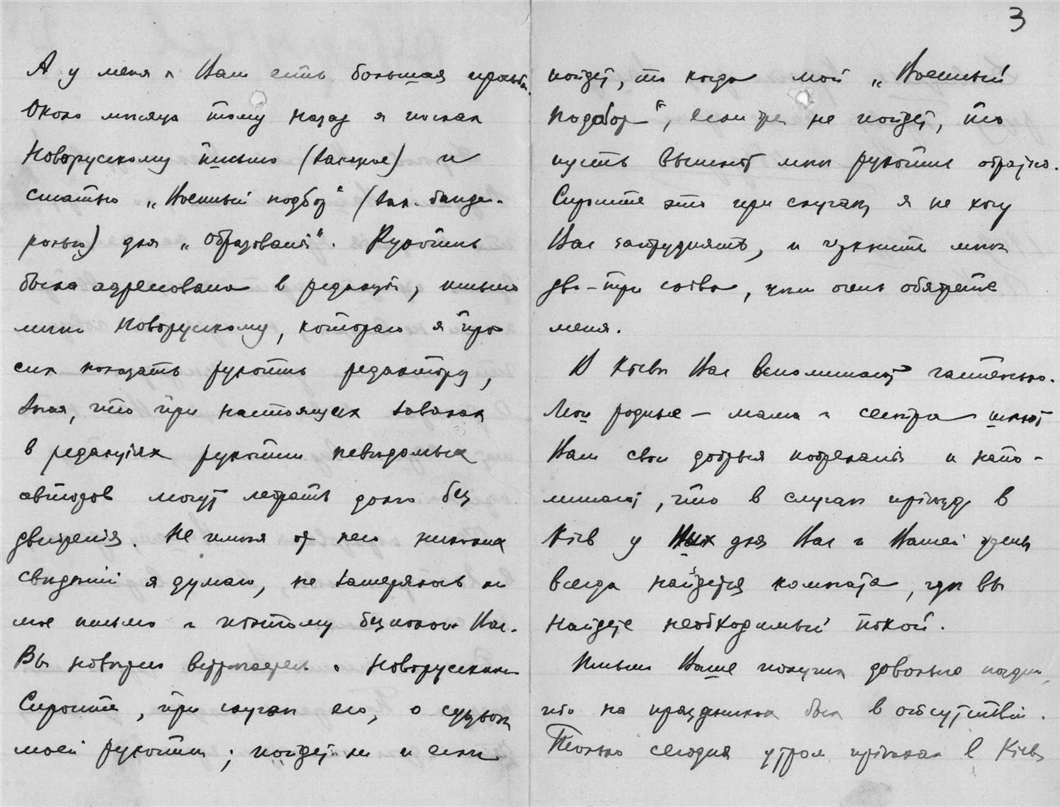 3
А у меня к Вам есть большая просьба.
Около месяца тому назад я послал
Новорусскому письмо (заказное) и
статью „Военный подбор“ (зак. банде-
ролью) для „Образования“. Рукопись
была адресована в редакцію, письмо
лично Новорусскому, котораго я про-
сил показать рукопись редактору,
зная, что при настоящих завалах
в редакціях рукописи неведомых
авторов могут лежать долго без
движенія. Не имея от него никаких
сведеній я думаю, не затерялось ли
мое письмо и поэтому безпокою Вас.
Вы наверно встречаетесь с Новорусским
Спросите, при случае его, о судьбе
моей рукописи; пойдет ли и если
пойдет, то когда мой „Военный
подбор“, если же не пойдет, то
пусть вышлют мне рукопись обратно.
Спросите это при случае, я не хочу
Вас затруднять, и черкните мне
два-три слова, чем очень обяжете
меня.
В Кіеве Вас вспоминают частенько.
Мои родные – мама и сестра шлют
Вам свои добрыя пожеланія и напо-
минают, что в случае пріезда в
Кіев у них для Вас и Вашей
всегда найдется комната, где вы
найдете необходимый покой.
Письмо Ваше получил довольно поздно,
что на праздниках был в отсутствіи.
Только сегодня утром пріехал в Кіев